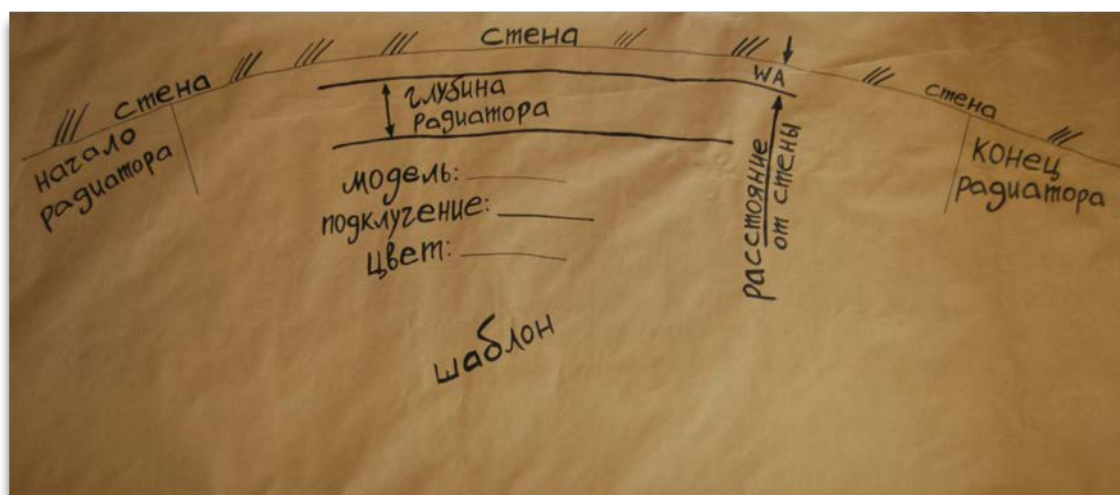 стена
стена
WA
стена
глубина
радиатора
начало
радиатора
расстояние
от стены
конец
радиатора
модель:
подключение:
цвет:
шаблон